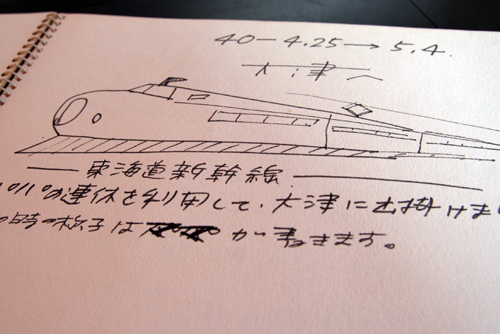 40-4.25→5.4.
大津へ
東海道新幹線
パパの連休を利用して、大津に出掛けま
の時の様子は が書きます。